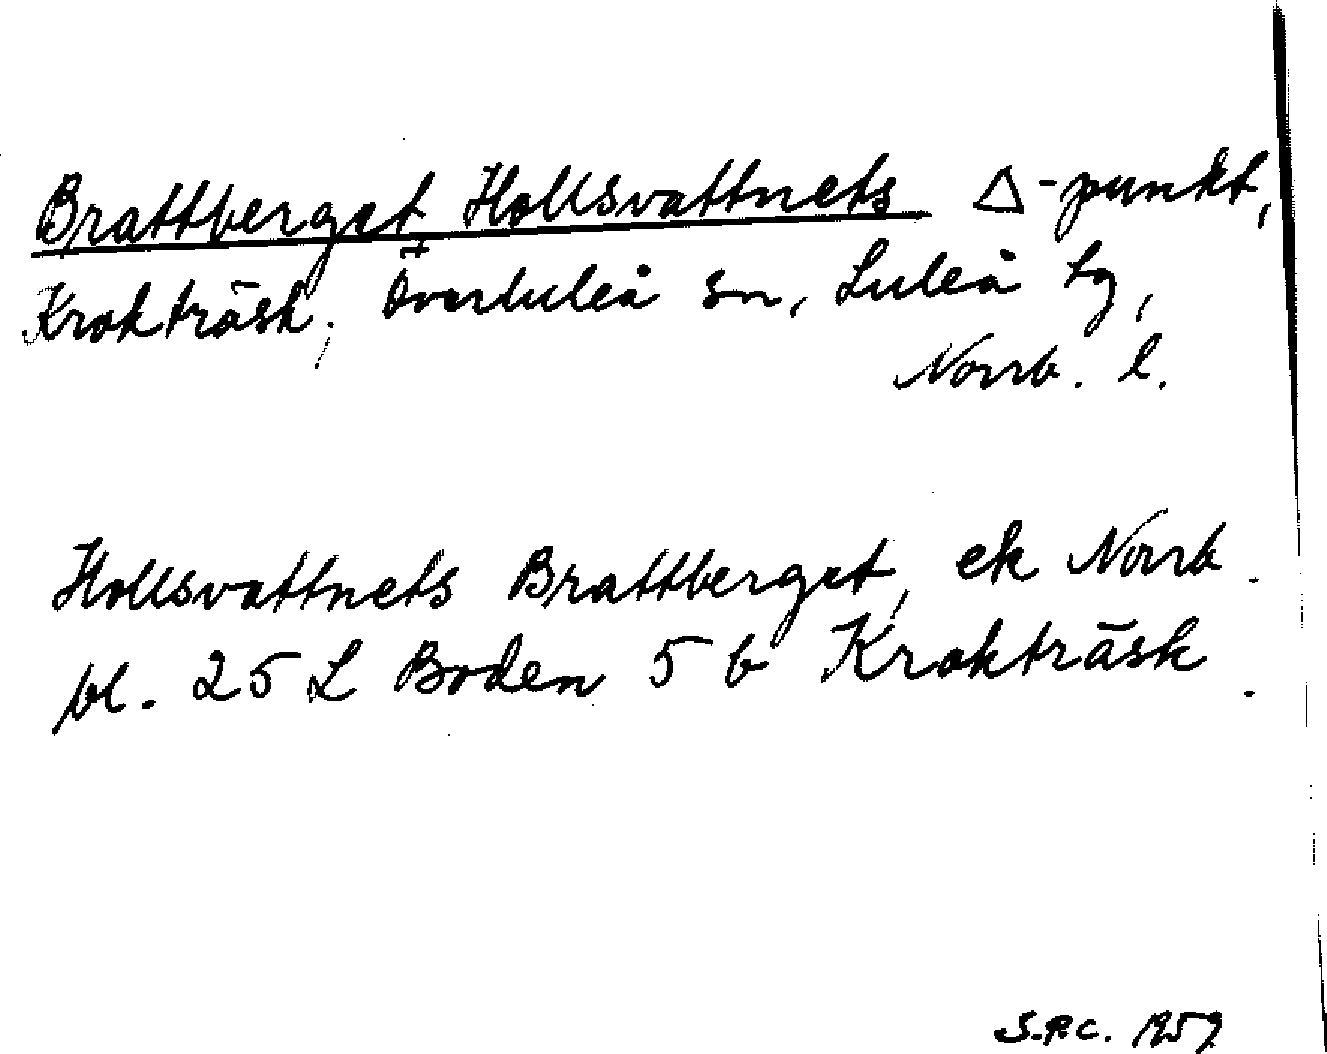 Brattberget, Hollsvattnets △-punkt,
Krokträsk, Överluleå sn, Luleå tg,
Norrb. l.
Hollsvattnets Brattberget, ek Norrb.
bl. 25 L Boden 5 b Krokträsk.
S.P.C. 1959